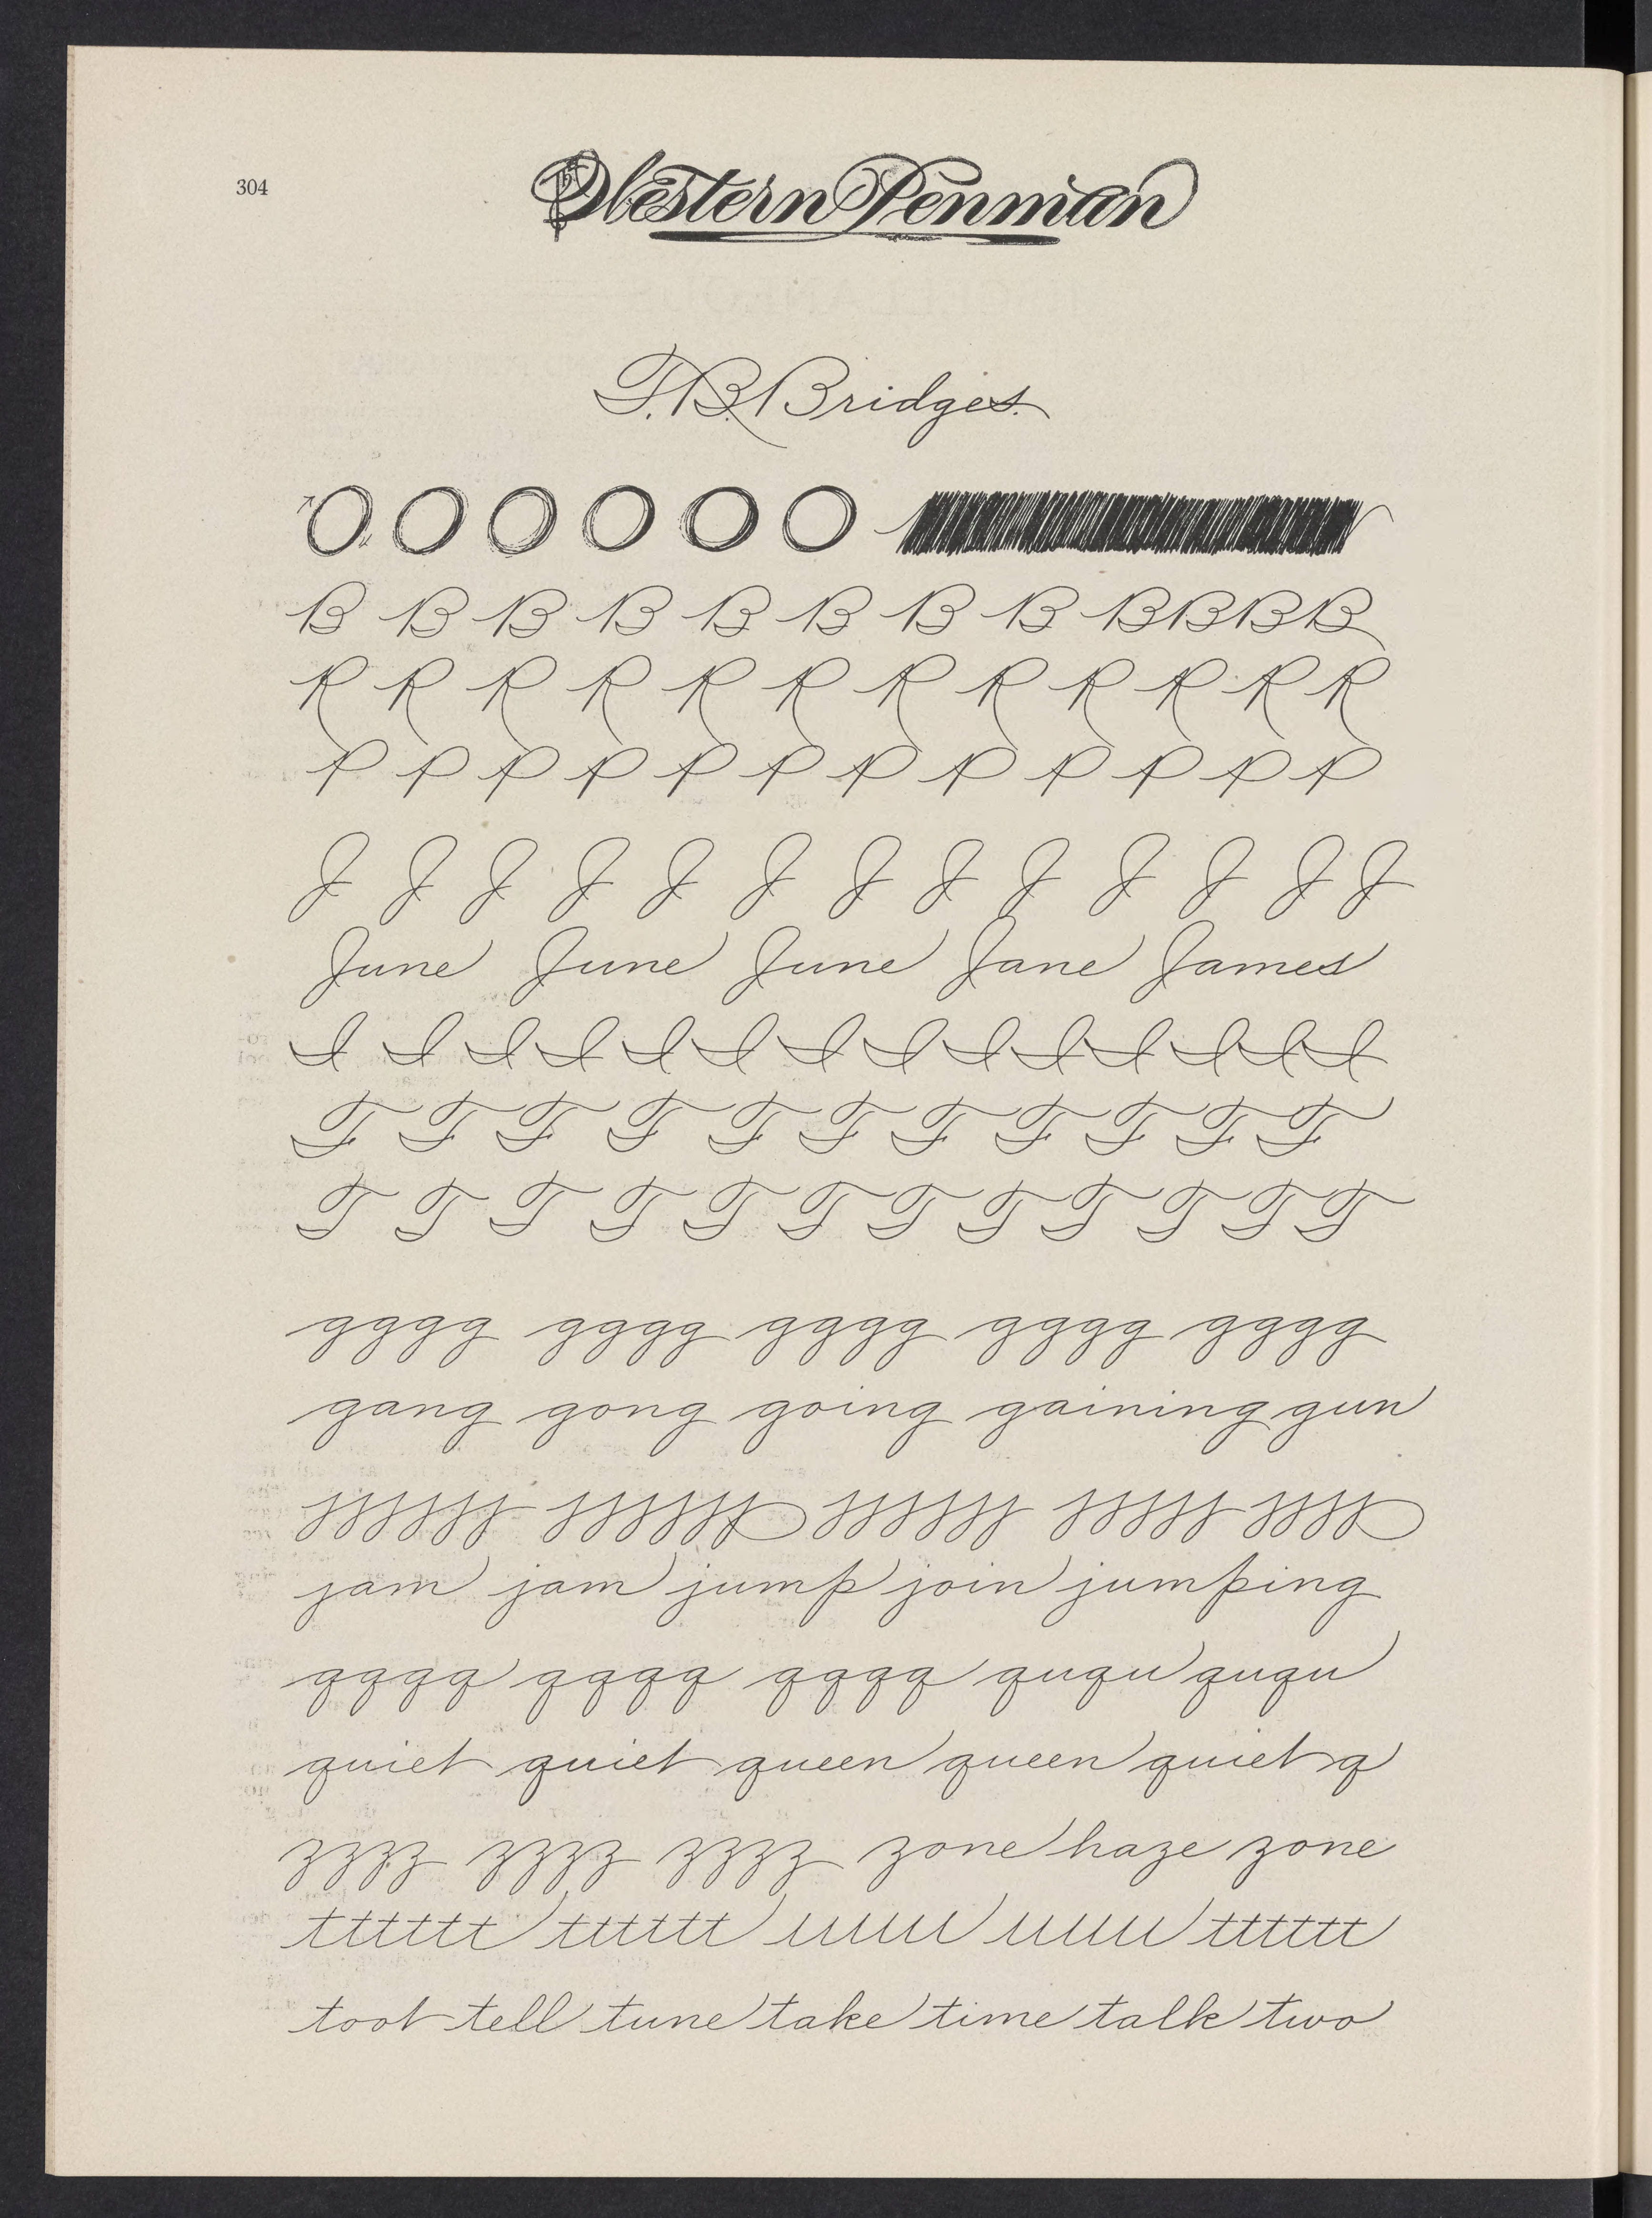 304
Western Penman
T. B. Bridges.
O O O O O O
B B B B B B B B B B B B
R R R R R R R R R R R R
P P P P P P P P P P P P
J J J J J J J J J J J J J
June June June Jane James
I I I I I I I I I I I I I I
F F F F F F F F F F F
T T T T T T T T T T T T
gggg gggg gggg gggg gggg
gang gong going gaining gun
jjjjjj jjjjjj jjjjjj jjjjj jjjj
jam jam jump join jumping
qqqq qqqq qqqq ququ ququ
quiet quiet queen queen quiet q
zzzz zzzz zzzz zone haze zone
tttttt tttttt uuu uuu tttttt
toot tell tune take time talk two